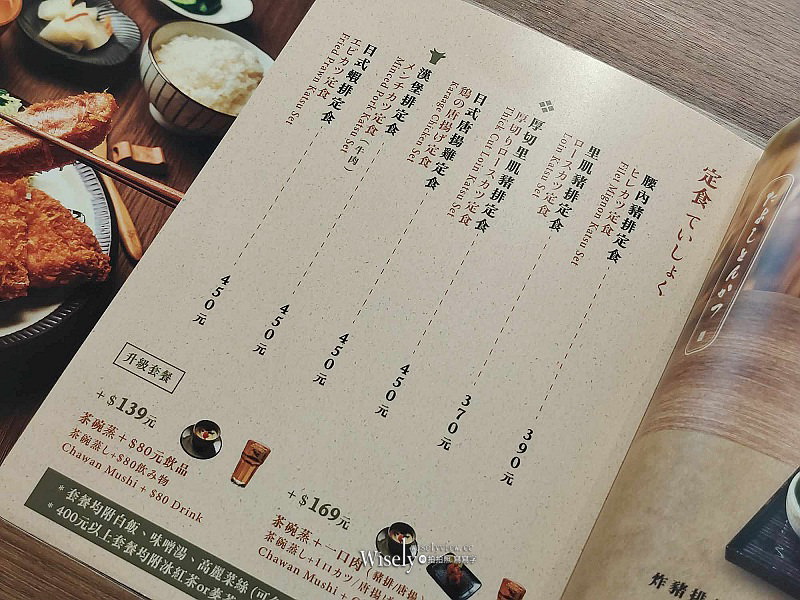 定食 ていしょく
腰內豬排定食
ヒレカツ定食
Filet Mignon Katsu Set
390元
里肌豬排定食
ロースカツ定食
Loin Katsu Set
370元
厚切里肌豬排定食
厚切りロースカツ定食
Thick Cut Loin Katsu Set
450元
日式唐揚雞定食
鶏の唐揚げ定食
Karage Chicken Set
450元
漢堡排定食
メンチカツ定食(牛肉)
Minced Pork Katsu Set
450元
日式蝦排定食
エビカツ定食
Fried Prawn Katsu Set
450元
升級套餐
+$139元
茶碗蒸+$80元飲品
茶碗蒸し+$80飲み物
Chawan Mushi + $80 Drink
+$169元
茶碗蒸+一口肉(豬排/唐揚)
茶碗蒸し+1口カツ/唐揚げ
Chawan Mushi +
* 套餐均附白飯、味噌湯、高麗菜絲
* 400元以上套餐均附冰紅茶or
とんかつ
炸豬排
Wisely
拍拍照寫寫字